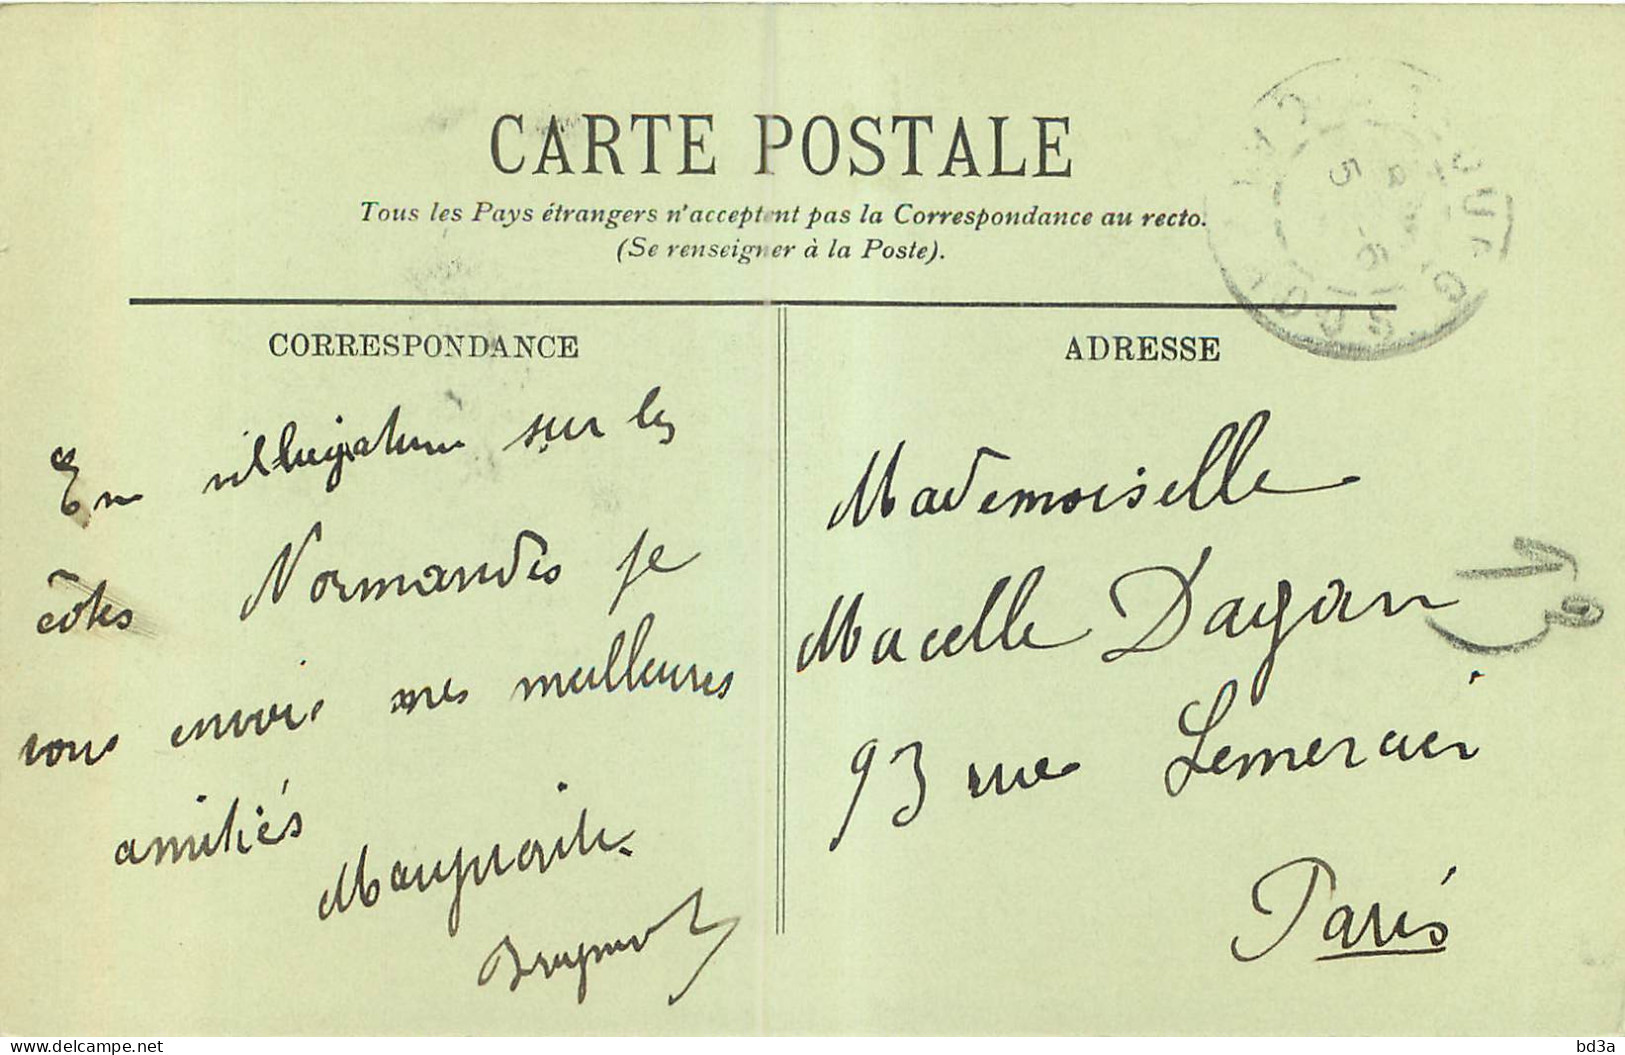 CARTE POSTALE
Tous les Pays étrangers n'acceptent pas la Correspondance au recto.
(Se renseigner à la Poste).
CORRESPONDANCE
En villégiature sur les
côtes Normandes je
vous envoie mes meilleures
amitiés
Marguerite
ADRESSE
Mademoiselle
Macelle Dagan
93 rue Lemercier
Paris
www.delcampe.net
bd3a